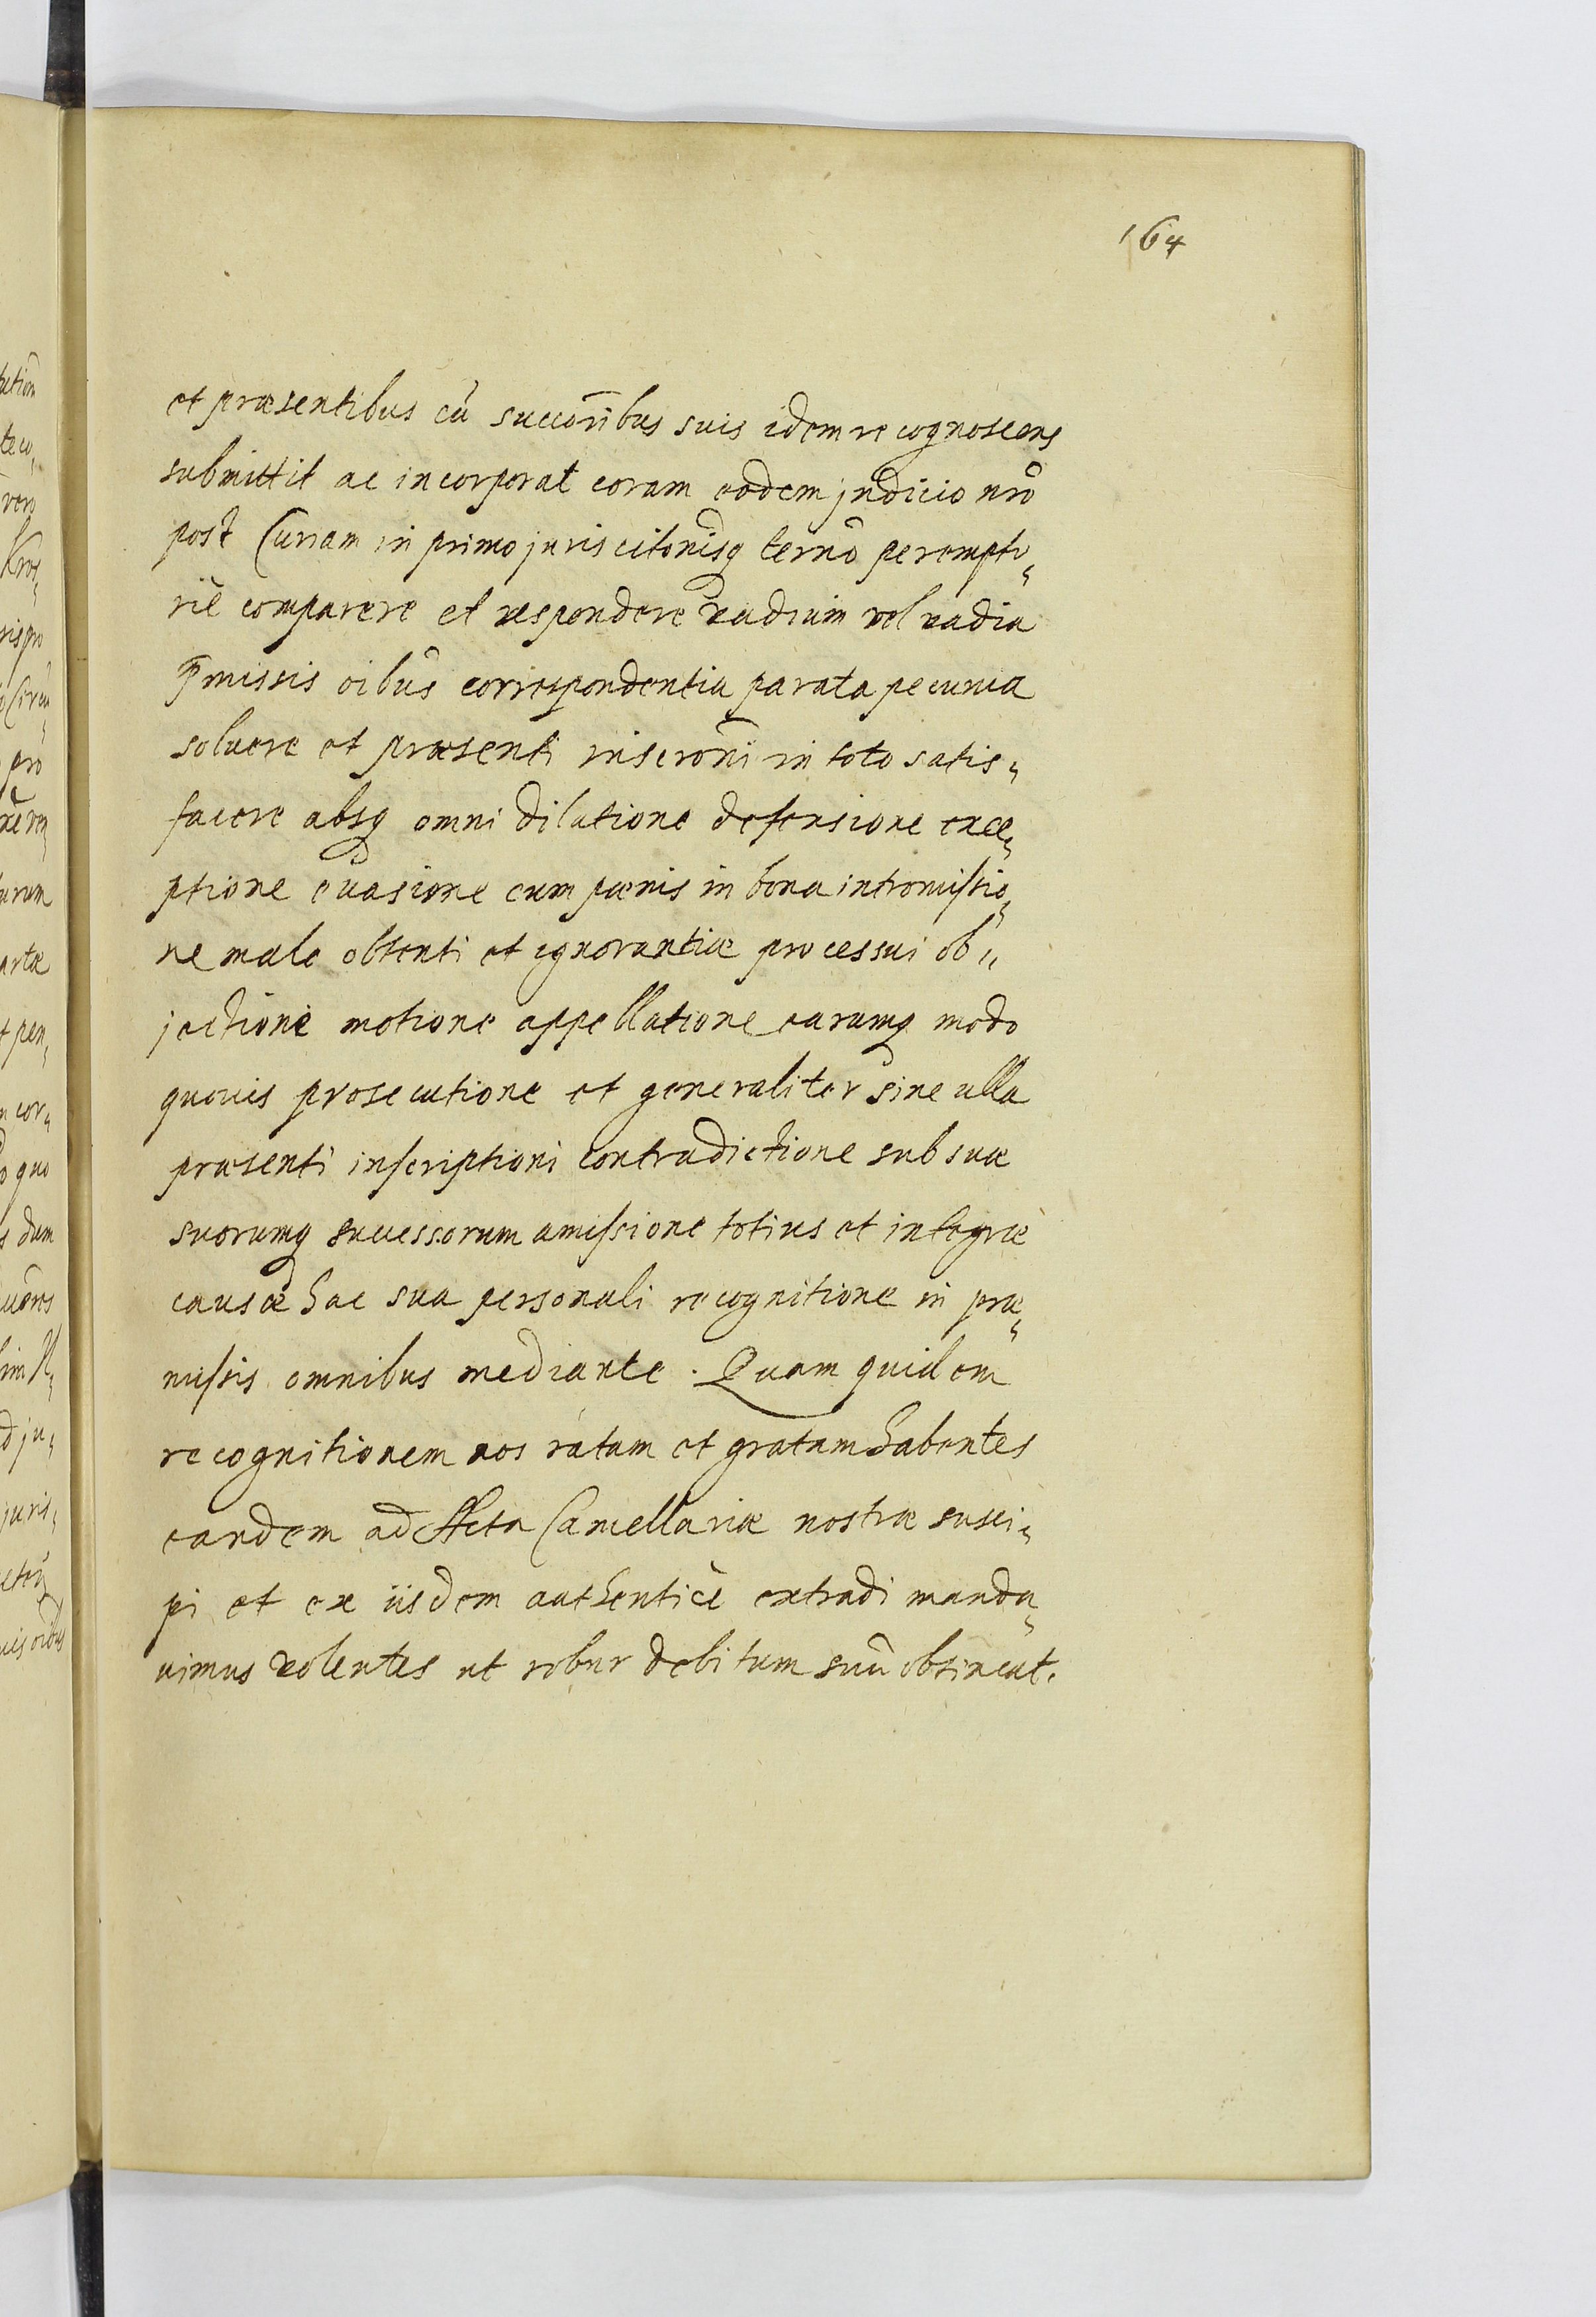 164
et præsentibus cū succorībus suis idem recognoscens
submittit ac incorporat coram eodem judicio nro
post Curiam in primo juris citonisq termo perempto„
rië comparere et respondere vadium vel vadia
p̄missis oibus correspondentia parata pecunia
soluere et præsenti inscroni in toto satis„
facere absq omni dilatione defensione exce„
ptione euasione cum pœnis in bona intromissio„
ne male obtenti et ignorantiæ processui ob„
jectione motione appellatione earumq modo
quouis prosecutione et generaliter sine ulla
præsenti inscriptioni contradictione sub suæ
suorumq successorum amissione totius et integræ
causæ hac sua personali recognitione in præ„
missis omnibus mediante. Quam quidem
recognitionem nos ratam et gratam habentes
eandem ad Acta Cancellariæ nostræ susci„
pi et ex iisdem authenticè extradi manda„
uimus volentes ut robur debitum suū obtineat.